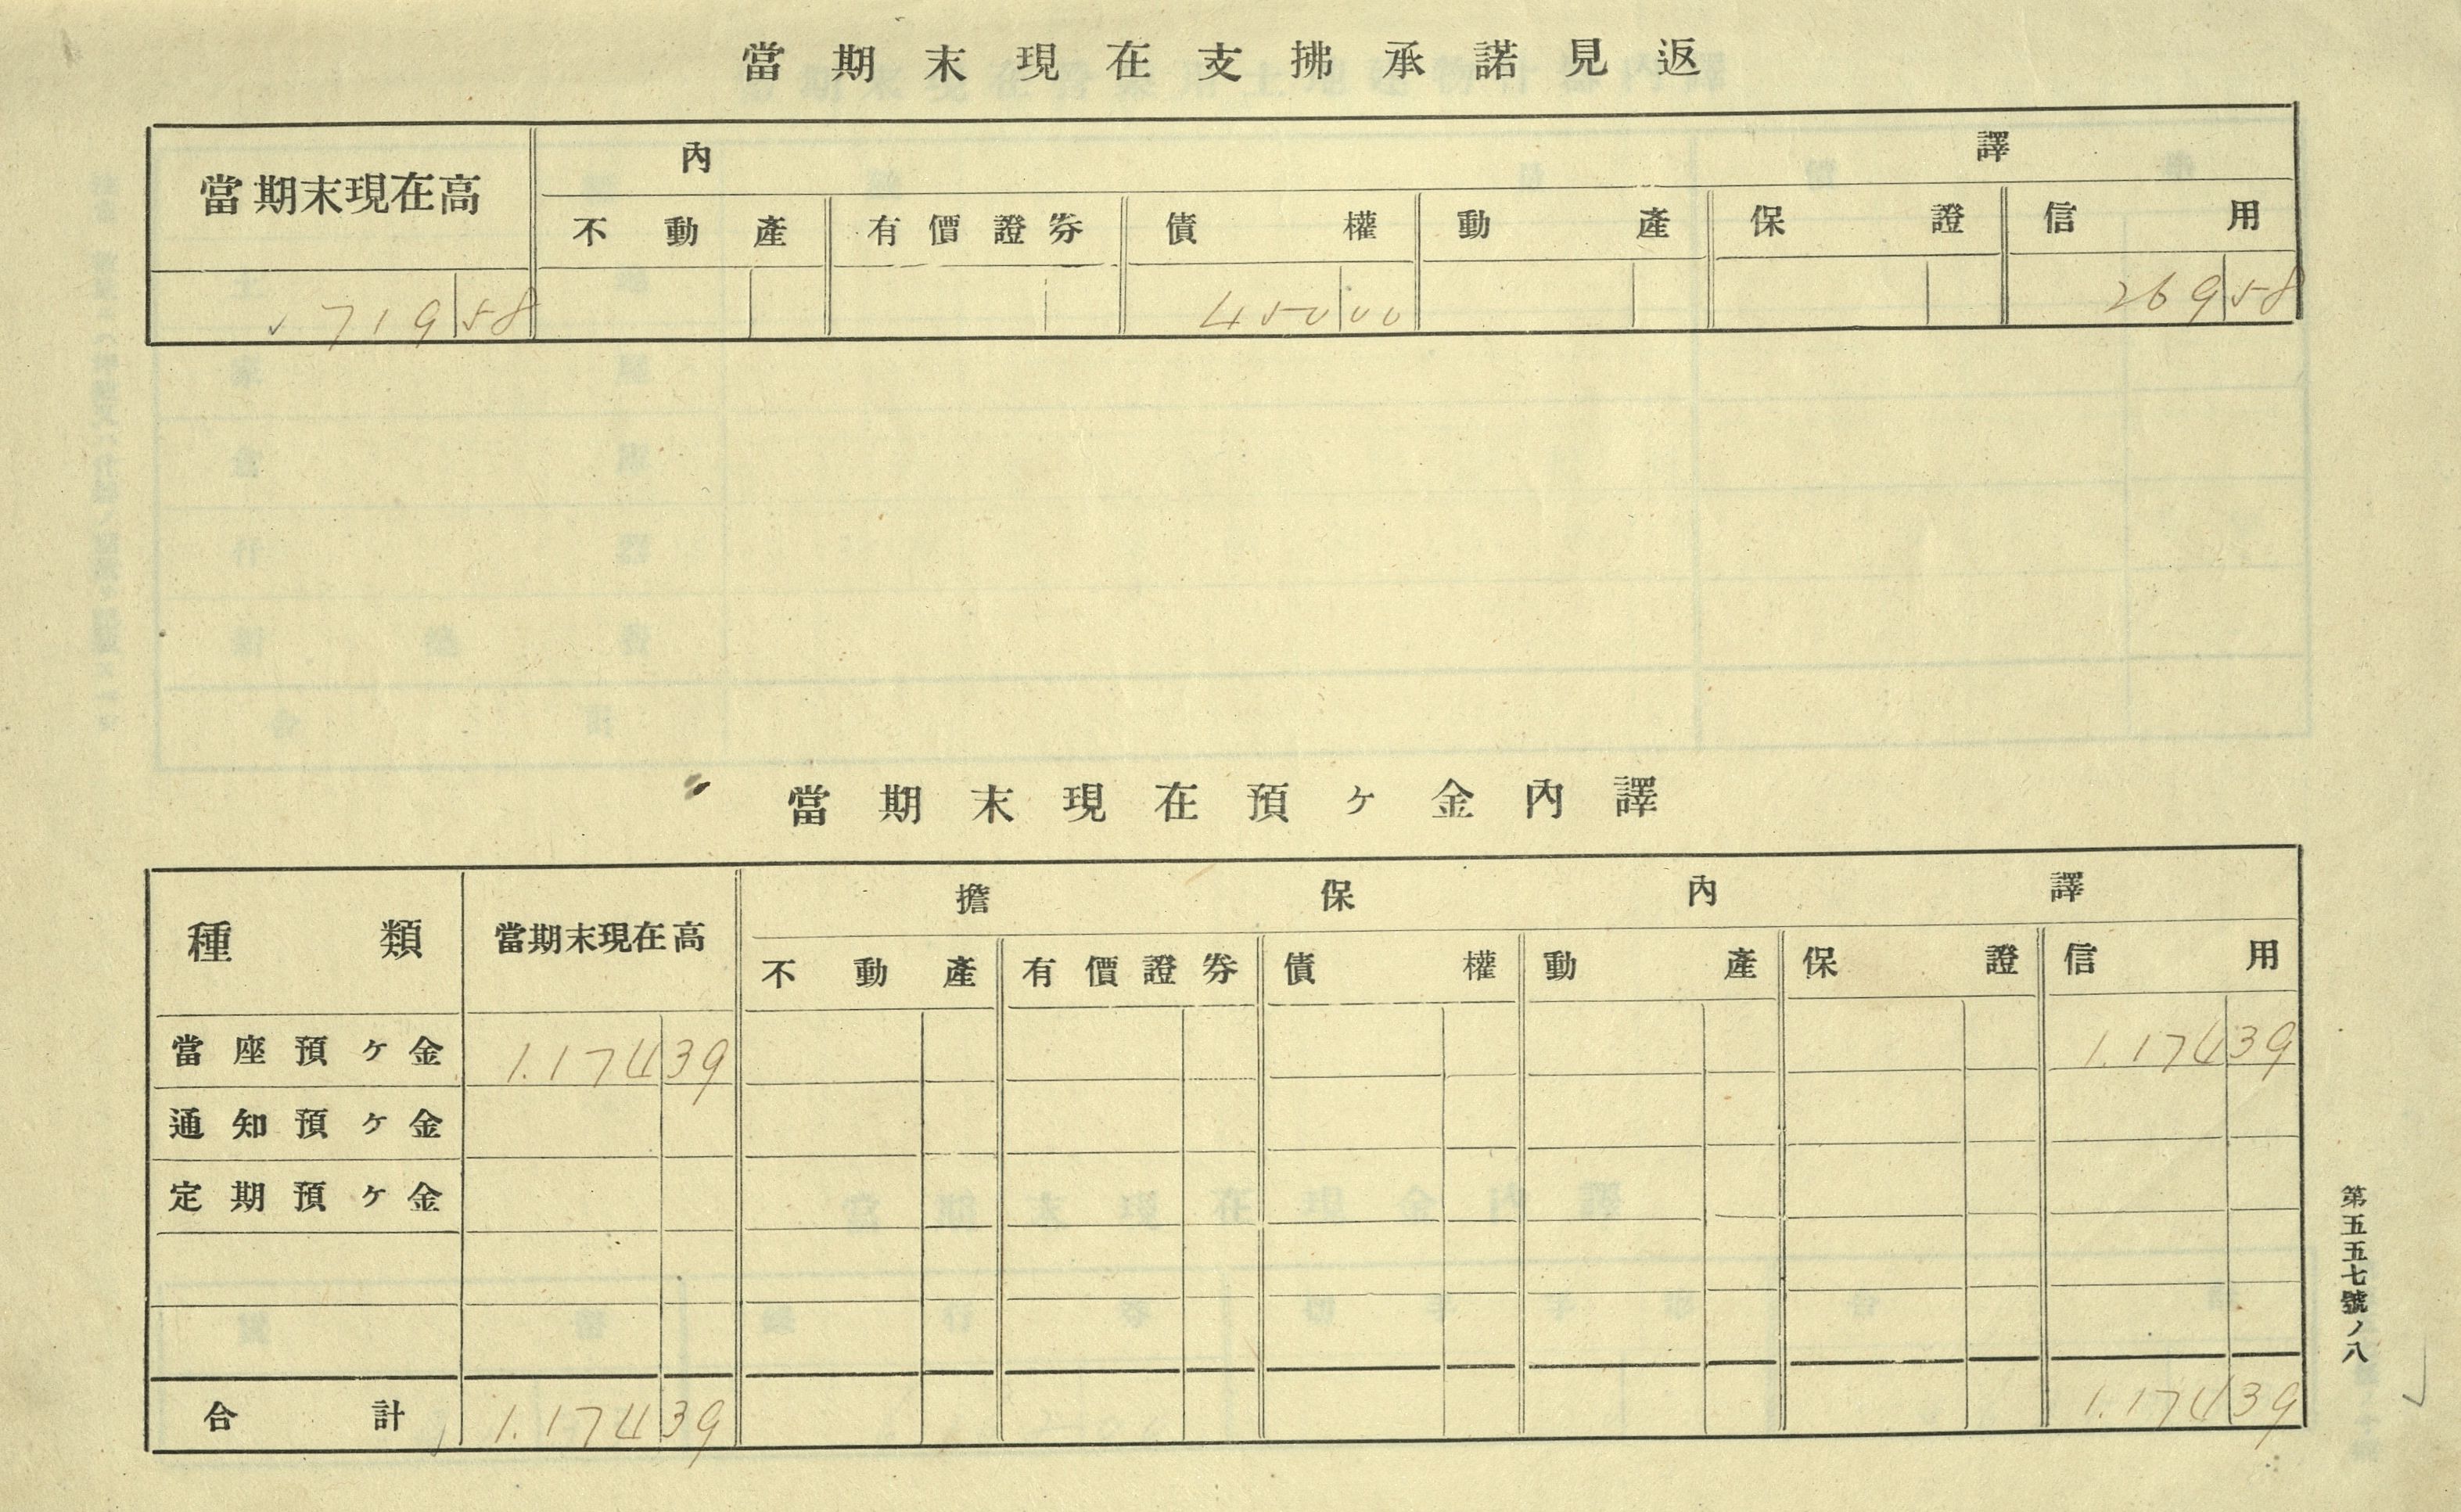 當期末現在支拂承諾見返
當期末現在高 內譯
不動產 有價證券 債權 動產 保證 信用
719 58 450 00 269 58
當期末現在預ヶ金內譯
種類 當期末現在高 擔保內譯
不動產 有價證券 債權 動產 保證 信用
當座預ヶ金 1.174 39 1.174 39
通知預ヶ金
定期預ヶ金
合計 1.174 39 1.174 39
第五五七號ノ八